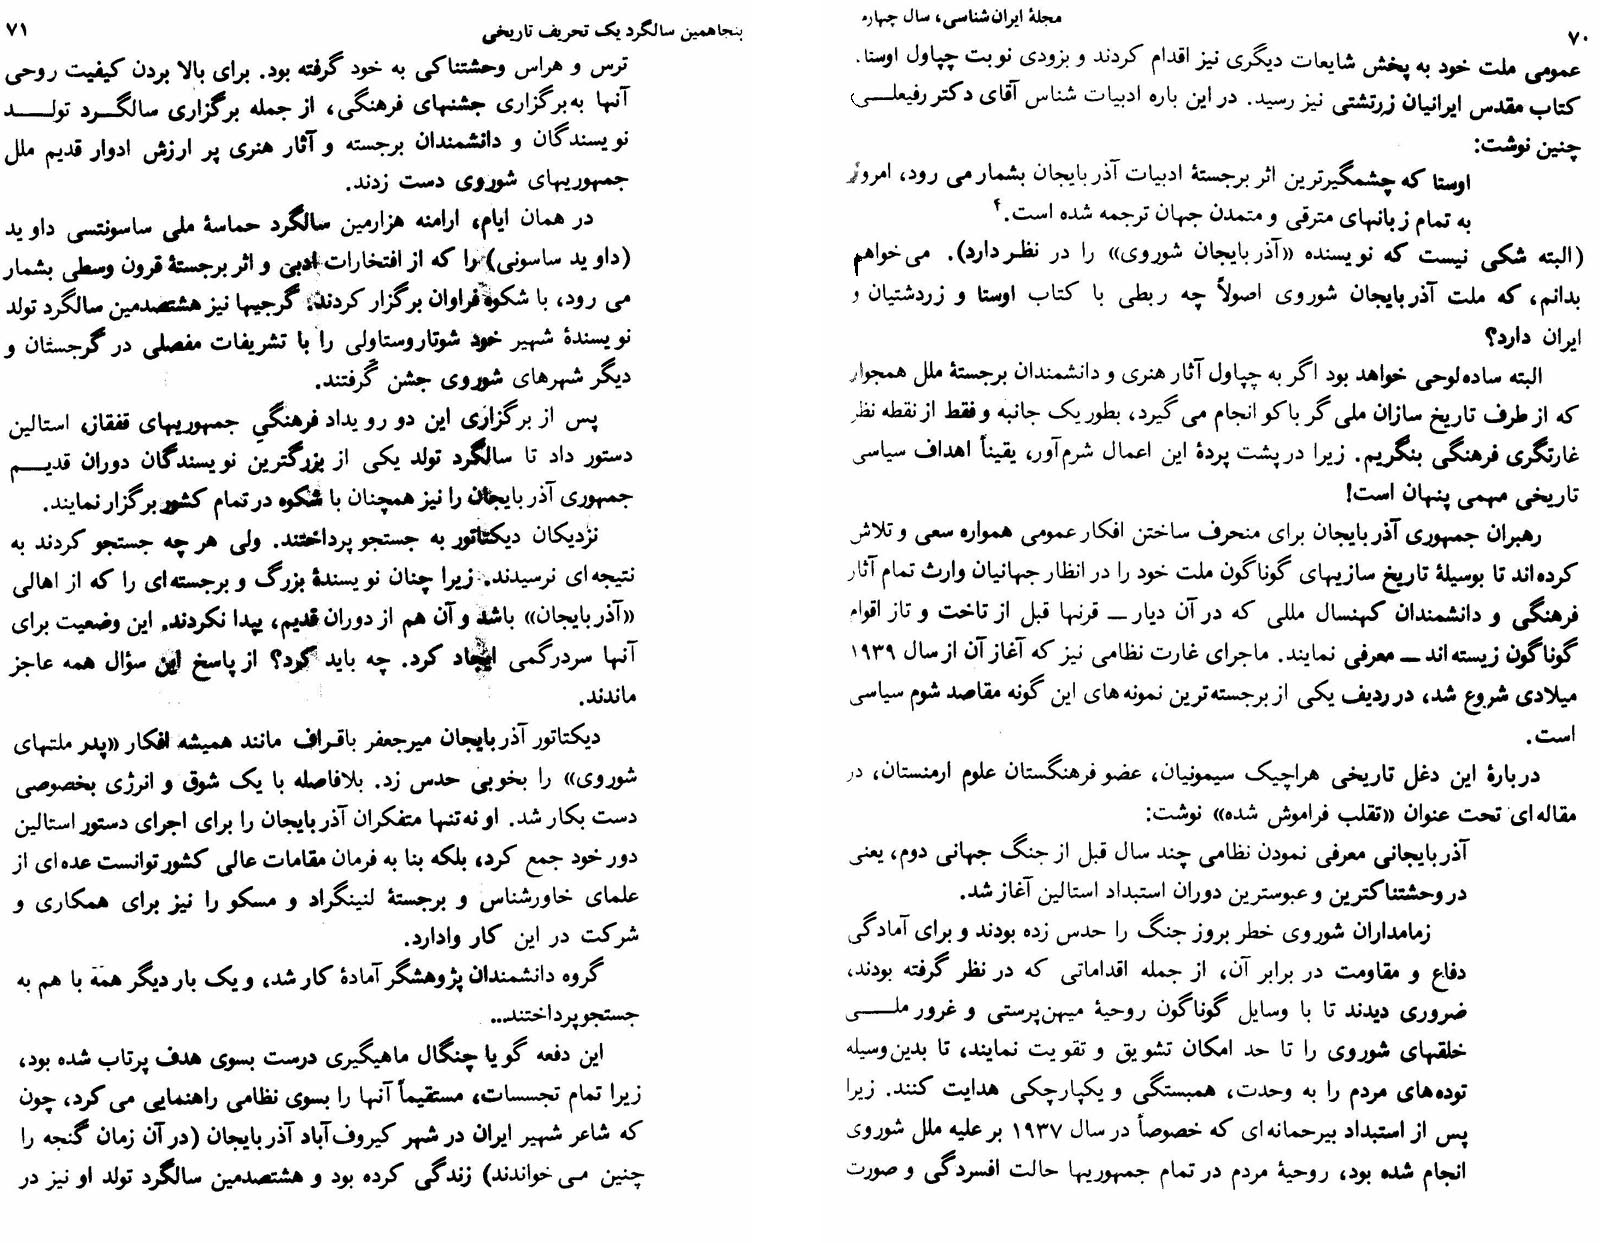 مجلهٔ ایران شناسی، سال چهارم
۷۰
عمومی ملت خود به پخش شایعات دیگری نیز اقدام کردند و بزودی نوبت چپاول اوستا،
کتاب مقدس ایرانیان زرتشتی نیز رسید. در این باره ادبیات شناس آقای دکتر رفیعلی
چنین نوشت:
اوستا که چشمگیرترین اثر برجستهٔ ادبیات آذربایجان بشمار می رود، امروز
به تمام زبانهای مترقی و متمدن جهان ترجمه شده است.۴
(البته شکی نیست که نویسنده «آذربایجان شوروی» را در نظر دارد). می خواهم
بدانم، که ملت آذربایجان شوروی اصولاً چه ربطی با کتاب اوستا و زردشتیان و
ایران دارد؟
البته ساده لوحی خواهد بود اگر به چپاول آثار هنری و دانشمندان برجستهٔ ملل همجوار
که از طرف تاریخ سازان ملی گر باکو انجام می گیرد، بطور یک جانبه و فقط از نقطه نظر
غارتگری فرهنگی بنگریم. زیرا در پشت پردهٔ این اعمال شرم آور، یقیناً اهداف سیاسی
تاریخی مهمی پنهان است!
رهبران جمهوری آذربایجان برای منحرف ساختن افکار عمومی همواره سعی و تلاش
کرده اند تا بوسیلهٔ تاریخ سازیهای گوناگون ملت خود را در انظار جهانیان وارث تمام آثار
فرهنگی و دانشمندان کهنسال مللی که در آن دیار ــ قرنها قبل از تاخت و تاز اقوام
گوناگون زیسته اند ــ معرفی نمایند. ماجرای غارت نظامی نیز که آغاز آن از سال ۱۹۳۹
میلادی شروع شد، در ردیف یکی از برجسته ترین نمونه های این گونه مقاصد شوم سیاسی
است.
دربارهٔ این دغل تاریخی هراچیک سیمونیان، عضو فرهنگستان علوم ارمنستان، در
مقاله ای تحت عنوان «تقلب فراموش شده» نوشت:
آذربایجانی معرفی نمودن نظامی چند سال قبل از جنگ جهانی دوم، یعنی
در وحشتناکترین و عبوسترین دوران استبداد استالین آغاز شد.
زمامداران شوروی خطر بروز جنگ را حدس زده بودند و برای آمادگی
دفاع و مقاومت در برابر آن، از جمله اقداماتی که در نظر گرفته بودند،
ضروری دیدند تا با وسایل گوناگون روحیهٔ میهن پرستی و غرور ملــی
خلقهای شوروی را تا حد امکان تشویق و تقویت نمایند، تا بدین وسیله
توده های مردم را به وحدت، همبستگی و یکپارچکی هدایت کنند. زیرا
پس از استبداد بیرحمانه ای که خصوصاً در سال ۱۹۳۷ بر علیه ملل شوروی
انجام شده بود، روحیهٔ مردم در تمام جمهوریها حالت افسردگی و صورت
پنجاهمین سالگرد یک تحریف تاریخی
۷۱
ترس و هراس وحشتناکی به خود گرفته بود. برای بالا بردن کیفیت روحی
آنها به برگزاری جشنهای فرهنگی، از جمله برگزاری سالگرد تولــد
نویسندگان و دانشمندان برجسته و آثار هنری پر ارزش ادوار قدیم ملل
جمهوریهای شوروی دست زدند.
در همان ایام، ارامنه هزارمین سالگرد حماسهٔ ملی ساسونتسی داوید
(داوید ساسونی) را که از افتخارات ادبی و اثر برجستهٔ قرون وسطی بشمار
می رود، با شکوه فراوان برگزار کردند. گرجیها نیز هشتصدمین سالگرد تولد
نویسندهٔ شهیر خود شوتاروستاولی را با تشریفات مفصلی در گرجستان و
دیگر شهرهای شوروی جشن گرفتند.
پس از برگزاری این دو رویداد فرهنگی جمهوریهای قفقاز، استالین
دستور داد تا سالگرد تولد یکی از بزرگترین نویسندگان دوران قدیــم
جمهوری آذربایجان را نیز همچنان با شکوه در تمام کشور برگزار نمایند.
نزدیکان دیکتاتور به جستجو پرداختند. ولی هر چه جستجو کردند به
نتیجه ای نرسیدند. زیرا چنان نویسندهٔ بزرگ و برجسته ای را که از اهالی
«آذربایجان» باشد و آن هم از دوران قدیم، پیدا نکردند. این وضعیت برای
آنها سردرگمی ایجاد کرد. چه باید کرد؟ از پاسخ این سؤال همه عاجز
ماندند.
دیکتاتور آذربایجان میرجعفر باقراف مانند همیشه افکار «پدر ملتهای
شوروی» را بخوبی حدس زد. بلافاصله با یک شوق و انرژی بخصوصی
دست بکار شد. او نه تنها متفکران آذربایجان را برای اجرای دستور استالین
دور خود جمع کرد، بلکه بنا به فرمان مقامات عالی کشور توانست عده ای از
علمای خاورشناس و برجستهٔ لنینگراد و مسکو را نیز برای همکاری و
شرکت در این کار وادارد.
گروه دانشمندان پژوهشگر آمادهٔ کار شد، و یک بار دیگر همه با هم به
جستجو پرداختند...
این دفعه گویا چنگال ماهیگیری درست بسوی هدف پرتاب شده بود،
زیرا تمام تجسسات، مستقیماً آنها را بسوی نظامی راهنمایی می کرد، چون
که شاعر شهیر ایران در شهر کیروف آباد آذربایجان (در آن زمان گنجه را
چنین می خواندند) زندگی کرده بود و هشتصدمین سالگرد تولد او نیز در